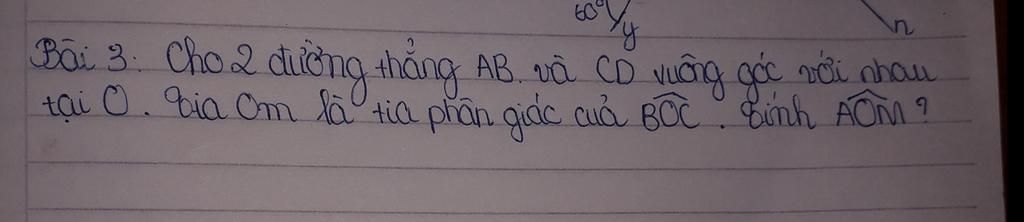 60° y n
Bài 3. Cho 2 đường thẳng AB. và CD vuông góc với nhau
tại O. Tia Om là tia phân giác của BOC. Tính AOM?